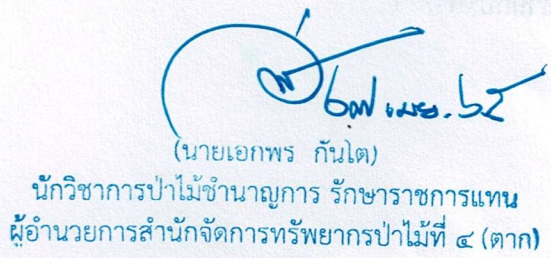 ๒๗ เมย. ๖๕
(นายเอกพร กันโต)
นักวิชาการป่าไม้ชำนาญการ รักษาราชการแทน
ผู้อำนวยการสำนักจัดการทรัพยากรป่าไม้ที่ ๔ (ตาก)